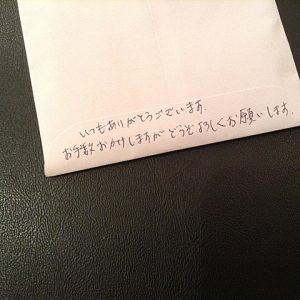 いつもありがとうございます.
お手数おかけしますがどうぞよろしくお願いします.